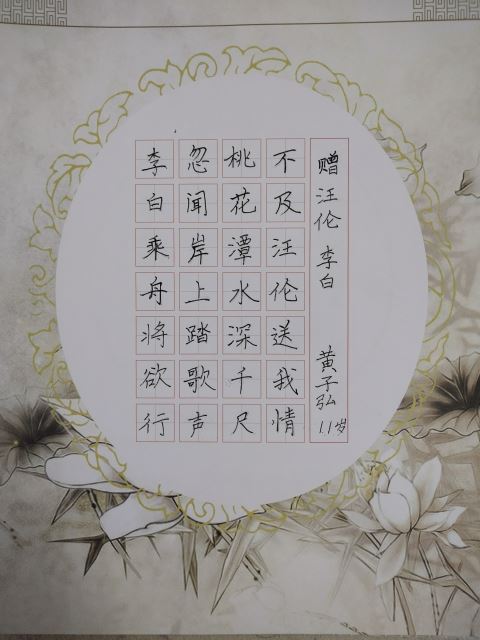 李白乘舟将欲行
忽闻岸上踏歌声
桃花潭水深千尺
不及汪伦送我情
赠汪伦 李白 黄子弘 11岁